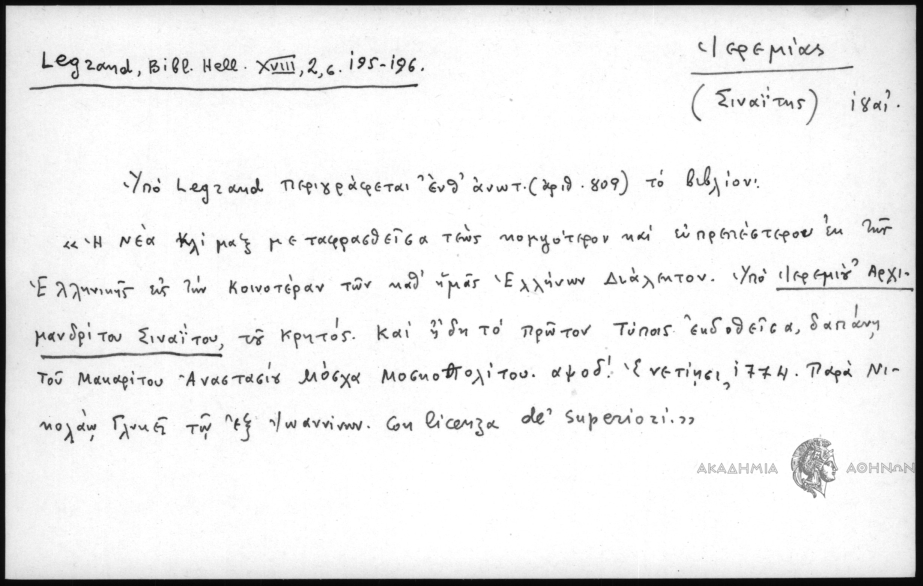 Legrand, Bibl. Hell. XVIII, 2, σ. 195-196.
Ἱερεμίας
(Σιναΐτης) ιηαι.
Ὑπό Legrand περιγράφεται ἐνθ' ἀνωτ. (ἀριθ. 809) τό βιβλίον:
«Ἡ Νέα Κλίμαξ μεταφρασθεῖσα τέως κομψότερον καί εὐπρεπέστερον ἐκ τῆς
Ἑλληνικῆς εἰς τήν Κοινοτέραν τῶν καθ' ἡμᾶς Ἑλλήνων Διάλεκτον. Ὑπό Ἱερεμίου Ἀρχι-
μανδρίτου Σιναΐτου, τοῦ Κρητός. Καί ἤδη τό πρῶτον Τύποις ἐκδοθεῖσα, δαπάνῃ
Τοῦ Μακαρίτου Ἀναστασίου Μόσχα Μοσκοπολίτου. αψοδ'. Ἐνετίησι, 1774. Παρά Νι-
κολάῳ Γλυκεῖ τῷ ἐξ Ἰωαννίνων. Con licenza de' Superiori.»
ΑΚΑΔΗΜΙΑ ΑΘΗΝΩΝ